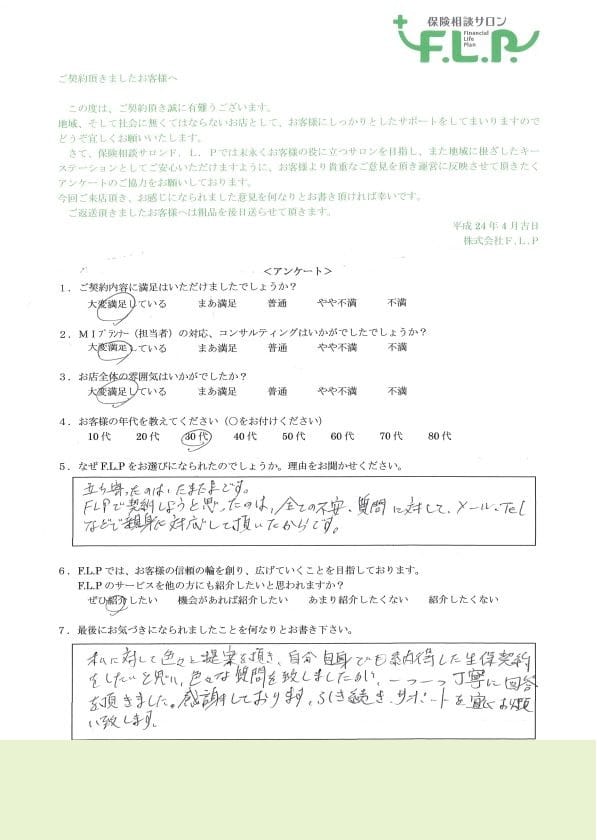 保険相談サロン
F.L.P.
Financial
Life
Plan
ご契約頂きましたお客様へ
この度は、ご契約頂き誠に有難うございます。
地域、そして社会に無くてはならないお店として、お客様にしっかりとしたサポートをしてまいりますので
どうぞ宜しくお願いいたします。
さて、保険相談サロンF．L．Pでは末永くお客様の役に立つサロンを目指し、また地域に根ざしたキー
ステーションとしてご安心いただけますように、お客様より貴重なご意見を頂き運営に反映させて頂きたく
アンケートのご協力をお願いしております。
今回ご来店頂き、お感じになられました意見を何なりとお書き頂ければ幸いです。
ご返送頂きましたお客様へは粗品を後日送らせて頂きます。
平成24年4月吉日
株式会社F.L.P
＜アンケート＞
1．ご契約内容に満足はいただけましたでしょうか？
大変満足している　まあ満足　普通　やや不満　不満
2．MIプランナー（担当者）の対応、コンサルティングはいかがでしたでしょうか？
大変満足している　まあ満足　普通　やや不満　不満
3．お店全体の雰囲気はいかがでしたか？
大変満足している　まあ満足　普通　やや不満　不満
4．お客様の年代を教えてください（○をお付けください）
10代　20代　30代　40代　50代　60代　70代　80代
5．なぜF.L.Pをお選びになられたのでしょうか。理由をお聞かせください。
立ち寄ったのは、たまたまです。
FLPで契約しようと思ったのは、全ての不安、質問に対して、メール、Tel
などで親身に対応して頂いたからです。
6．F.L.Pでは、お客様の信頼の輪を創り、広げていくことを目指しております。
F.L.Pのサービスを他の方にも紹介したいと思われますか？
ぜひ紹介したい　機会があれば紹介したい　あまり紹介したくない　紹介したくない
7．最後にお気づきになられましたことを何なりとお書き下さい。
私に対して色々と提案を頂き、自分自身でも納得した生保契約
をしたいと思い、色々な質問を致しましたが、一つ一つ丁寧に回答
を頂きました。感謝しております。引き続き、サポートを宜しくお願
い致します。